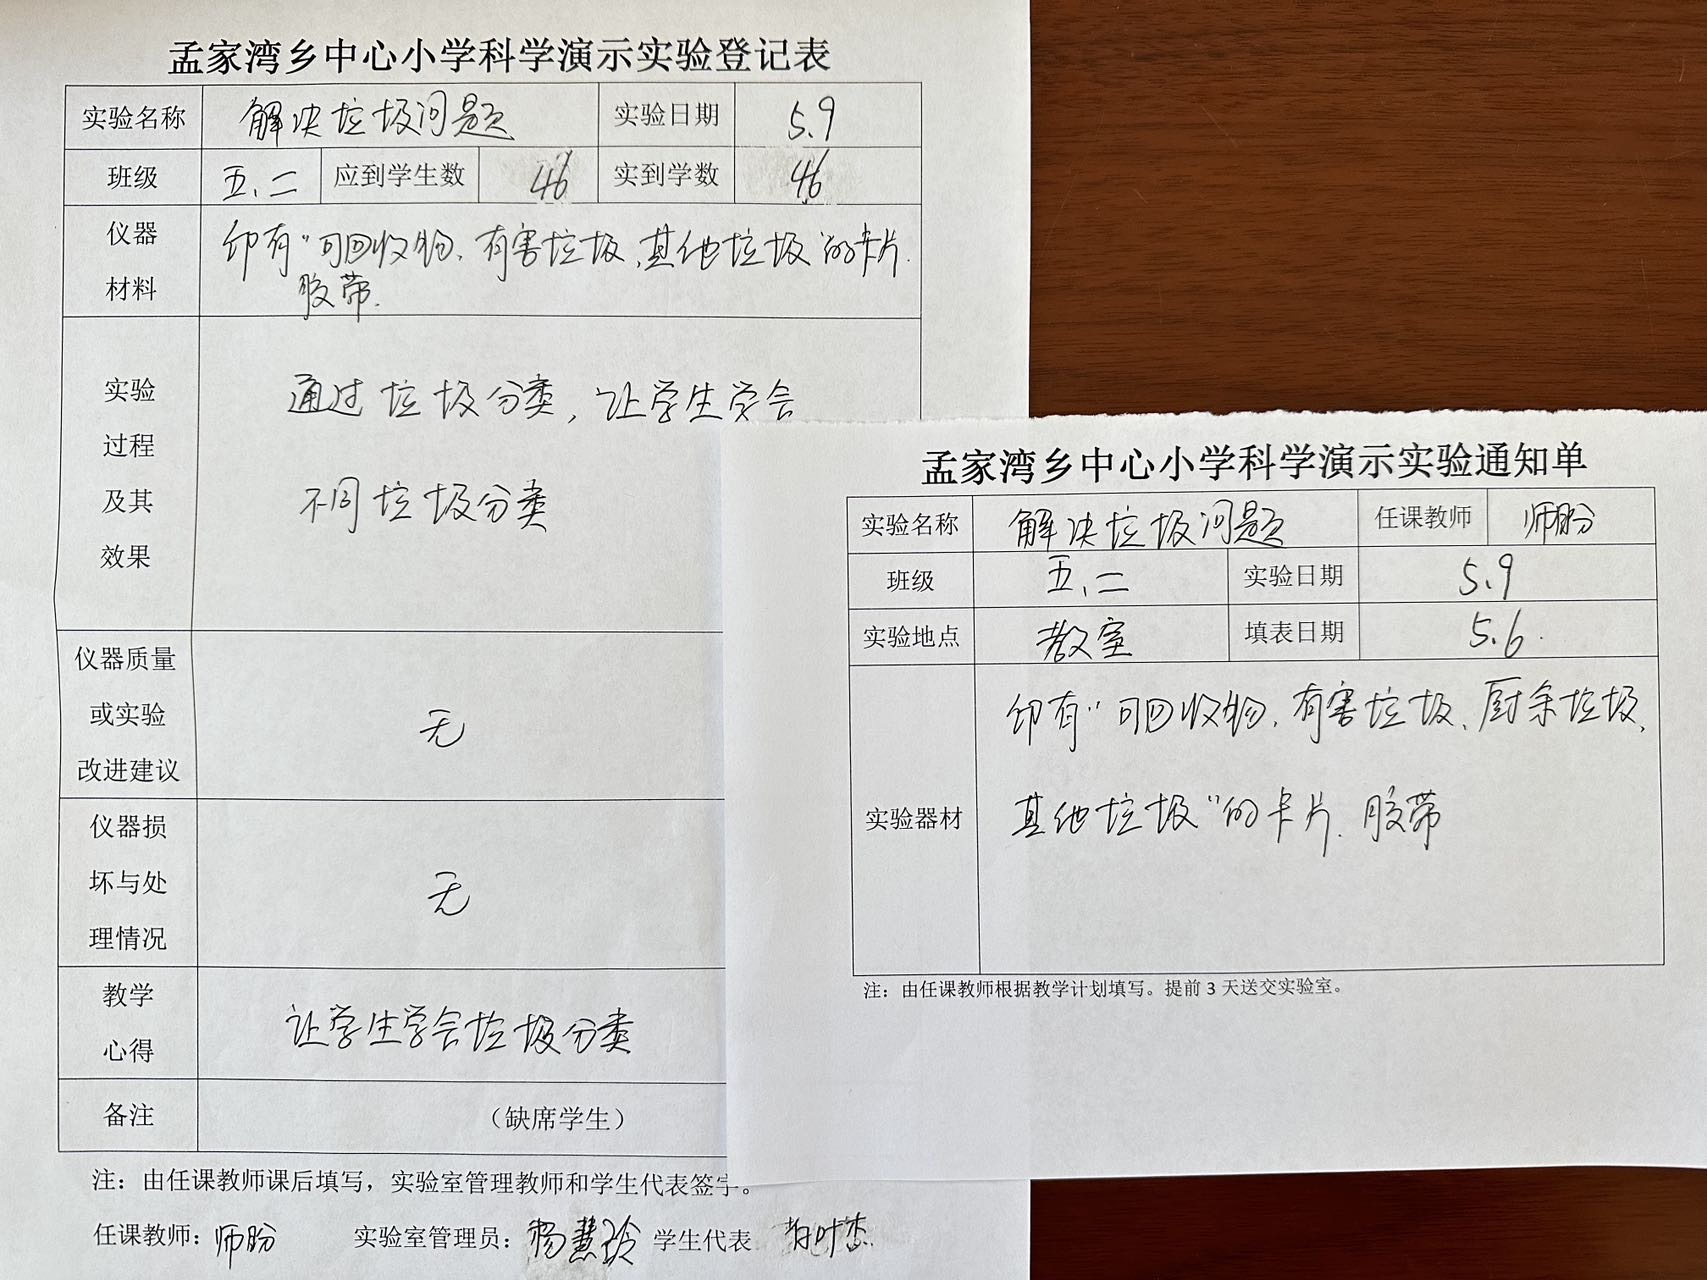 孟家湾乡中心小学科学演示实验登记表
实验名称 解决垃圾问题 实验日期 5.9
班级 五.二 应到学生数 46 实到学数 46
仪器材料 印有“可回收物、有害垃圾、其他垃圾”的卡片.
胶带.
实验过程及其效果 通过垃圾分类,让学生学会
不同垃圾分类
仪器质量或实验改进建议 无
仪器损坏与处理情况 无
教学心得 让学生学会垃圾分类
备注 （缺席学生）
注：由任课教师课后填写，实验室管理教师和学生代表签字。
任课教师：师盼 实验室管理员：杨慧玲 学生代表
孟家湾乡中心小学科学演示实验通知单
实验名称 解决垃圾问题 任课教师 师盼
班级 五.二 实验日期 5.9
实验地点 教室 填表日期 5.6.
实验器材 印有“可回收物、有害垃圾、厨余垃圾、
其他垃圾”的卡片、胶带
注：由任课教师根据教学计划填写。提前 3 天送交实验室。